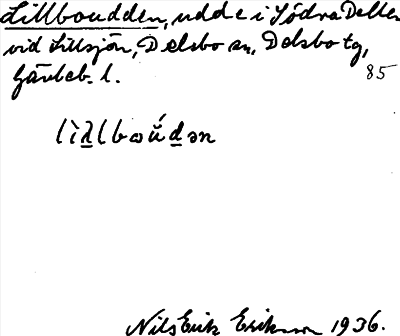 Lillboudden, udde i Södra Dellen
vid Lillsjön, Delsbo sn, Delsbo tg,
Gävleb. l.
85
Nils Erik Eriksson 1936.